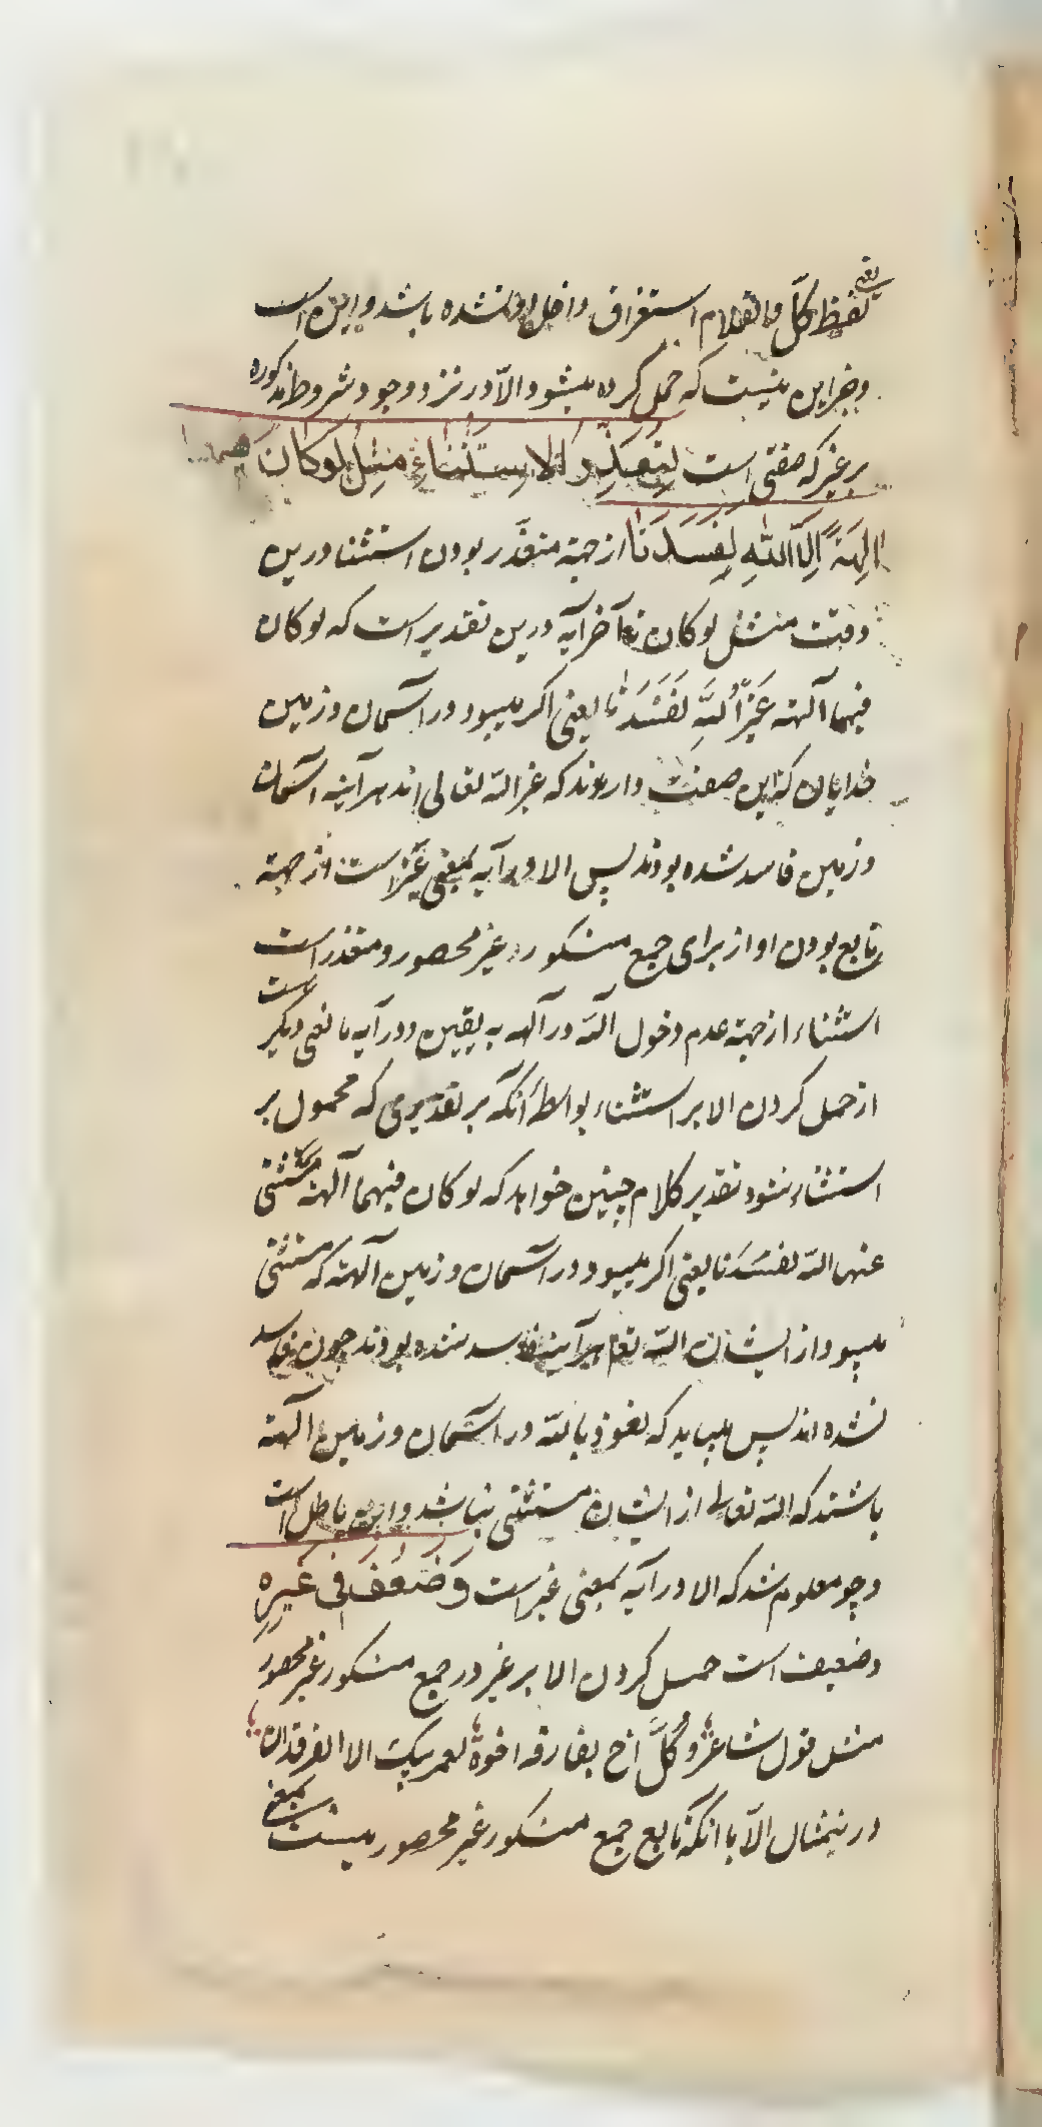 یعنی لفظ کل و الف و لام استغراق داخل او نشده باشد و این است
و جز این نیست که حمل کرده میشود الا در نزد وجود شروط مذکوره
بر غیر که صفتی است لِتَعَذُّرِ الاسِتثْنٰاءِ مِثل لَوْ کٰانَ فیهمٰا
اٰلِهَةٌ اِلَّا اللّٰهِ لَفَسَدَتٰا از جهة متعذّر بودن استثنا درین
وقت مثل لو کان تا آخر آیه درین تقدیر است که لو کان
فیهما آلهة غَیْرُ اللّهِ لَفَسَدَتٰا یعنی اکر میبود در آسمان و زمین
خدایان که این صفت دارند که غیر الله تعالی اند هرآینه آسمان
و زمین فاسد شده بودند پس الا در آیه بمعنی غیر است از جهة
تابع بودن او از برای جمع منکور غیر محصور و متعذر است
استثناء از جهة عدم دخول الله در آلهه به یقین و در آیه مانعی دیکر است
از حمل کردن الا بر استثناء بواسطهٔ آنکه بر تقدیری که محمول بر
استثناء شود تقدیر کلام چنین خواهد که لو کان فیهما آلهة مستثنی
عنها الله لفسَدَتا یعنی اکر میبود در آسمان و زمین آلهة که مستثنی
میبود از ایشان الله تعا هرآینه فاسد شده بودند چون فاسد
نشده اند پس میباید که نعوذ بالله در آسمان و زمین آلهة
باشند که الله تعالی از ایشان مستثنی نباشد و این باطل است
و چو معلوم شد که الا در آیه بمعنی غیر است وَضَعُفَ فِی غَیْرِهِ
و ضعیف است حمل کردن الا بر غیر در جمع منکور غیر محصور
مثل قول شاعر وَکُلُّ اخ یفارقه اخوهُ لعمر ابیک الا الفرقدان
درینمثال الّا با آنکه تابع جمع منکور غیر محصور نیست بمعنی